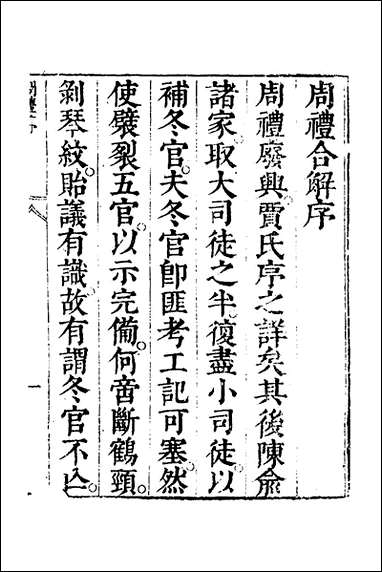 周禮合解序
周禮廢興賈氏序之詳矣其後陳俞
諸家取大司徒之半復盡小司徒以
補冬官。夫冬官卽匪考工記可塞。然
使襞裂五官。以示完備。何啻斷鶴頸。
剝琴紋。貽議有識。故有謂冬官不亾。
一